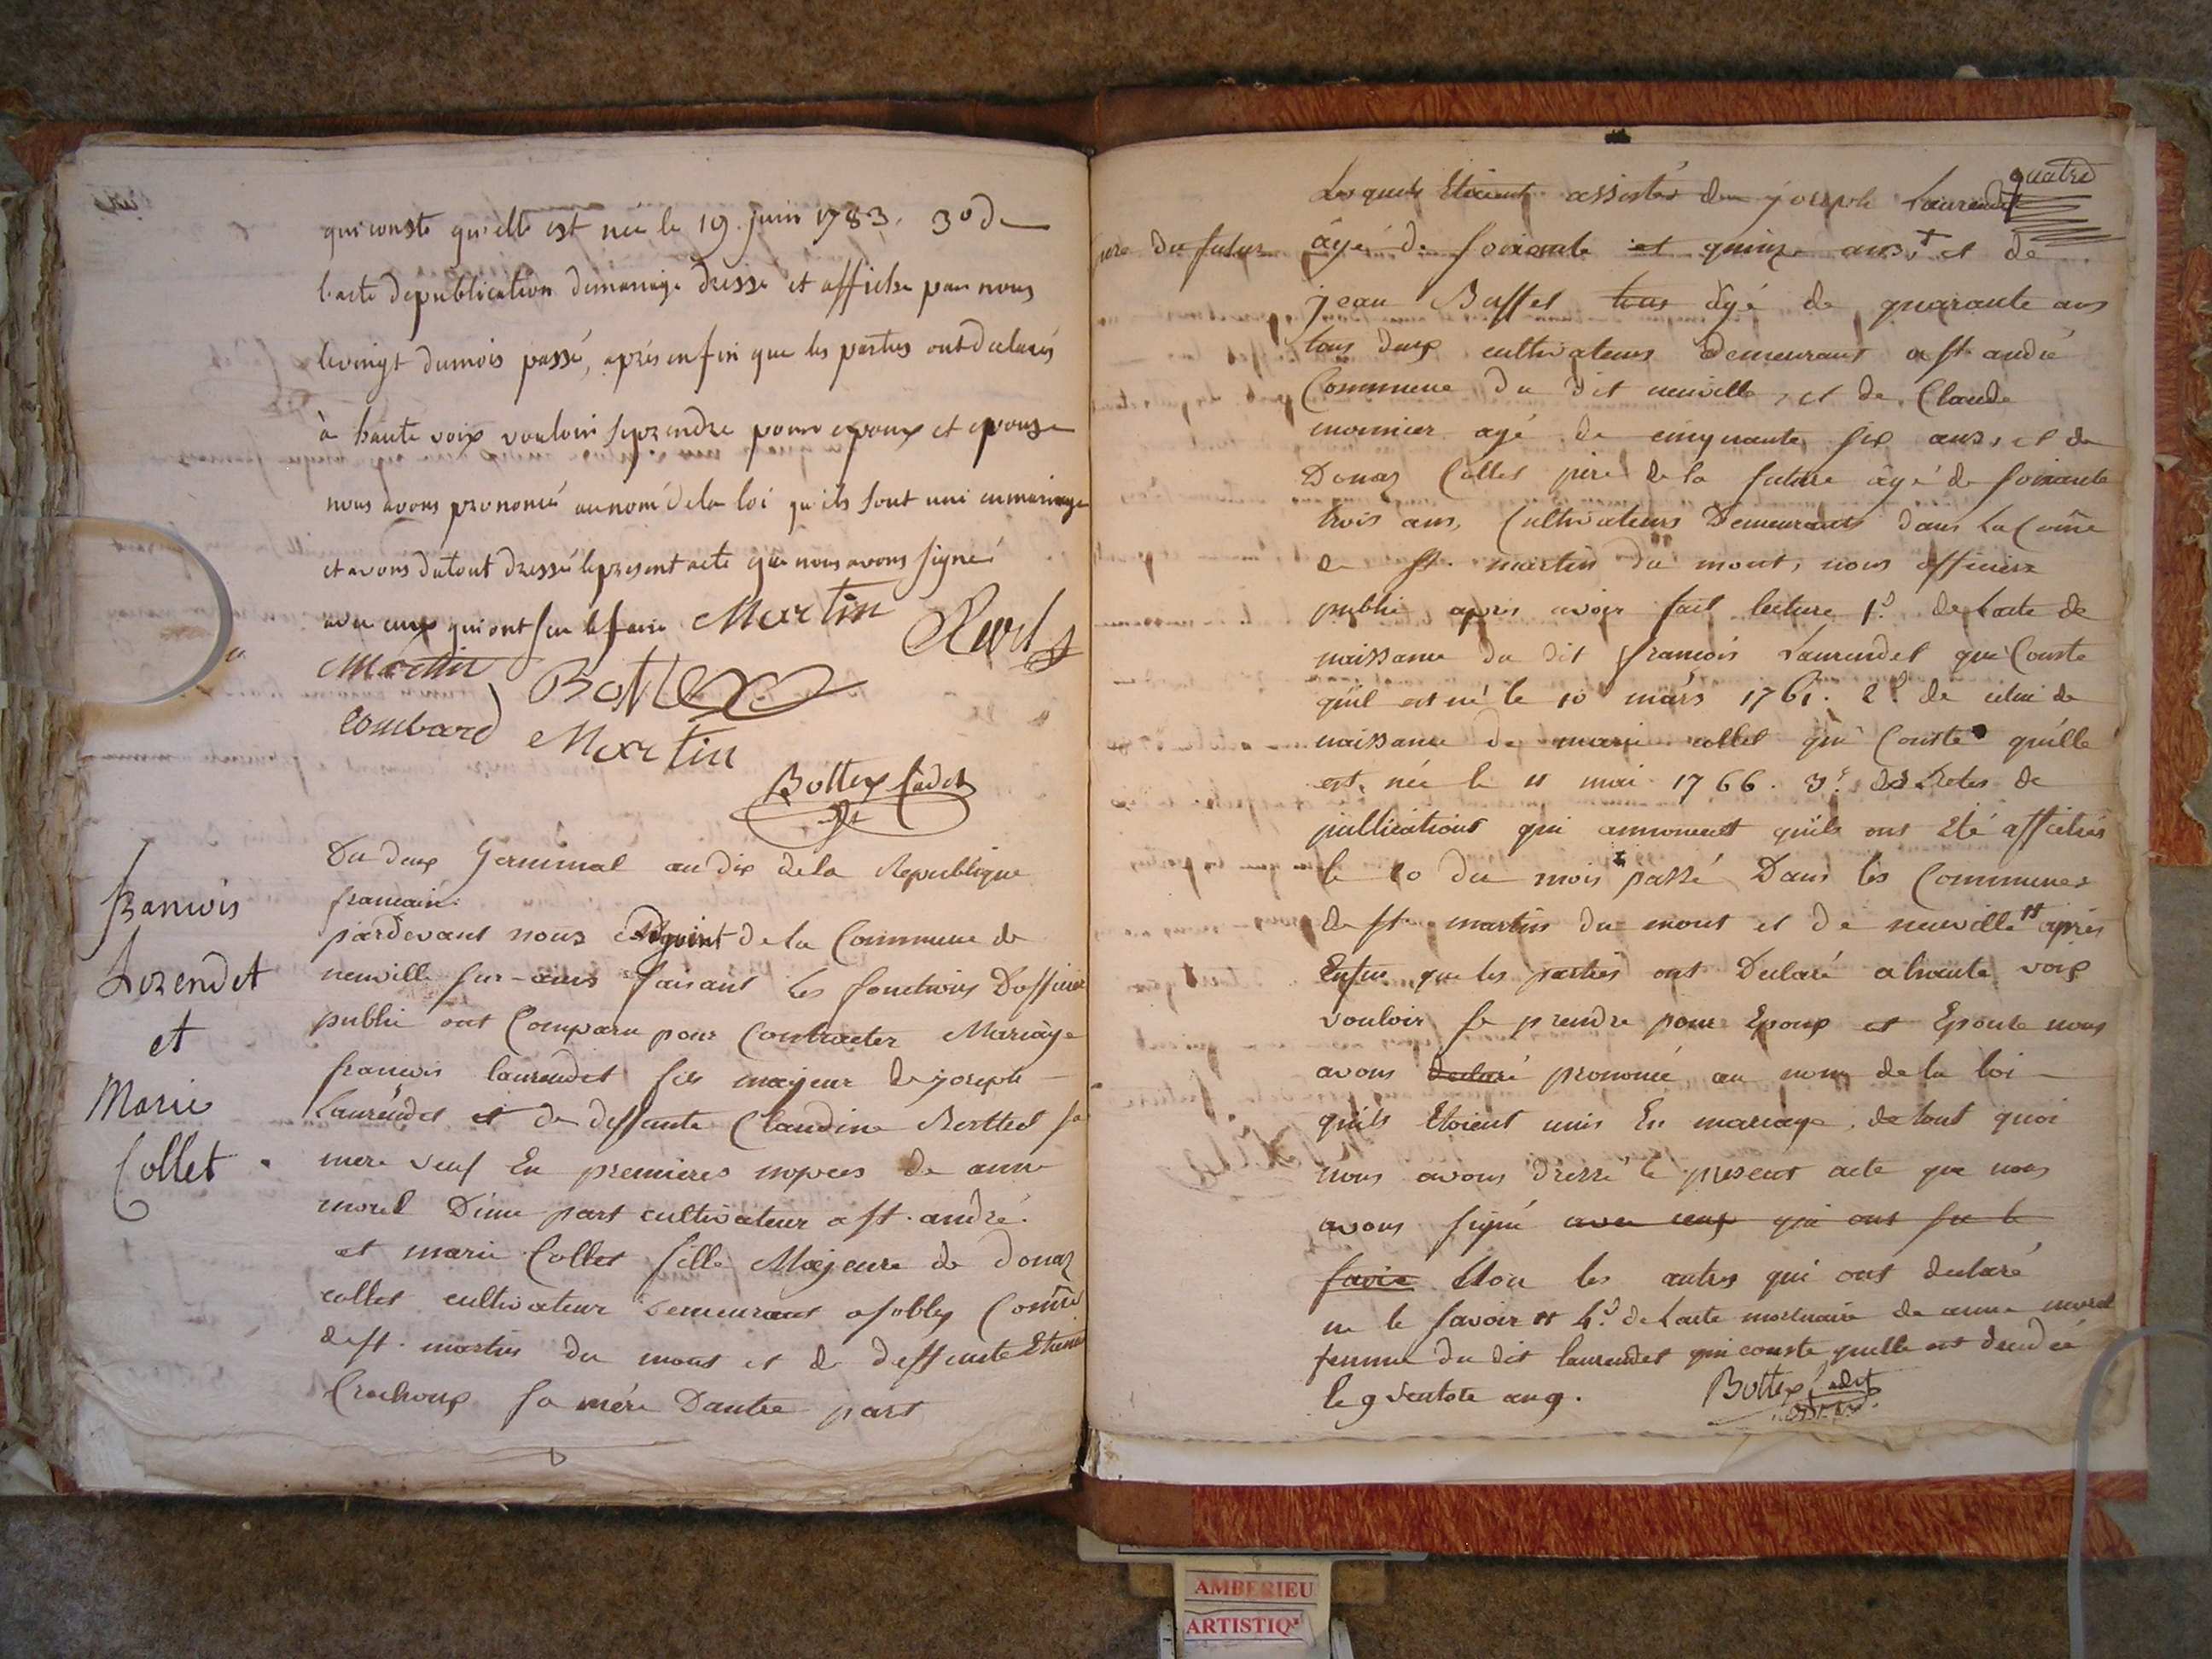 qui conste qu'elle est née le 19. juin 1783. 3º de
l'acte de publication de mariage dressé et affiché par nous
le vingt du mois passé, après enfin que les parties ont declarés
à haute voix vouloir se prendre pour epoux et epouse
nous avons prononcé au nom de la loi qu'ils sont uni en mariage
et avons du tout dressé le present acte que nous avons signé
avec ceux qui ont su le faire Martin
Martin Bottex
Combard Martin
Bottex Cadet
francois
Lorendet
et
Marie
Collet
Du deux Germinal an dix de la Republique
francaise.
pardevant nous Adjoint de la Commune de
neuville sur-ains faisant les fonctions D'officier
public ont Comparu pour Contracter Mariage
francois laurendet fils majeur de joseph
Laurendet et de deffunte Claudine Berthet sa
mere veuf En premieres nopces de anne
morel D'une part cultivateur a st. andré.
et marie Collet fille Majeure de Donaz
collet cultivateur demeurant a Soblay Comne
de st. martin du mont et de deffunte
sa mère D'autre part
quatre
Lesquels Etoient assistés de joseph Laurendet
pere du futur âgé de soixante et quinze ans + et de
jean Buffet tous âgé de quarante ans
tous deux cultivateurs demeurant a st andré
Commune du dit neuville, et de Claude
monnier agé de cinquante six ans, et de
Donaz Collet père de la future âgé de soixante
trois ans, Cultivateurs Demeurants dans la Comne
de st. martin du mont, nous officier
public après avoir fait lecture 1º. de Lacte de
naissance du dit francois Laurendet qui Conste
qu'il est né le 10 mars 1761. 2º. de celui de
naissance de marie collet qui Conste qu'elle
est née le 11 mai 1766. 3º. des actes de
publications qui annoncent qu'ils ont Eté affichés
le 20 du mois passé Dans les Communes
de st. martin du mont et de neuville # après
Enfin que les parties ont Declaré a haute voix
vouloir se prendre pour Epoux et Epouse nous
avons declaré prononcé au nom de la loi
qu'ils Etoient unis En mariage, de tout quoi
nous avons dressé le present acte que nous
avons signé avec ceux qui ont su le
faire Non les autres qui ont declaré
ne le savoir # 4º. de Lacte mortuaire de anne morel
femme du dit laurendet qui conste quelle est decedée
le 9 ventose an 9. Bottex Cadet
AMBERIEU
ARTISTIQ